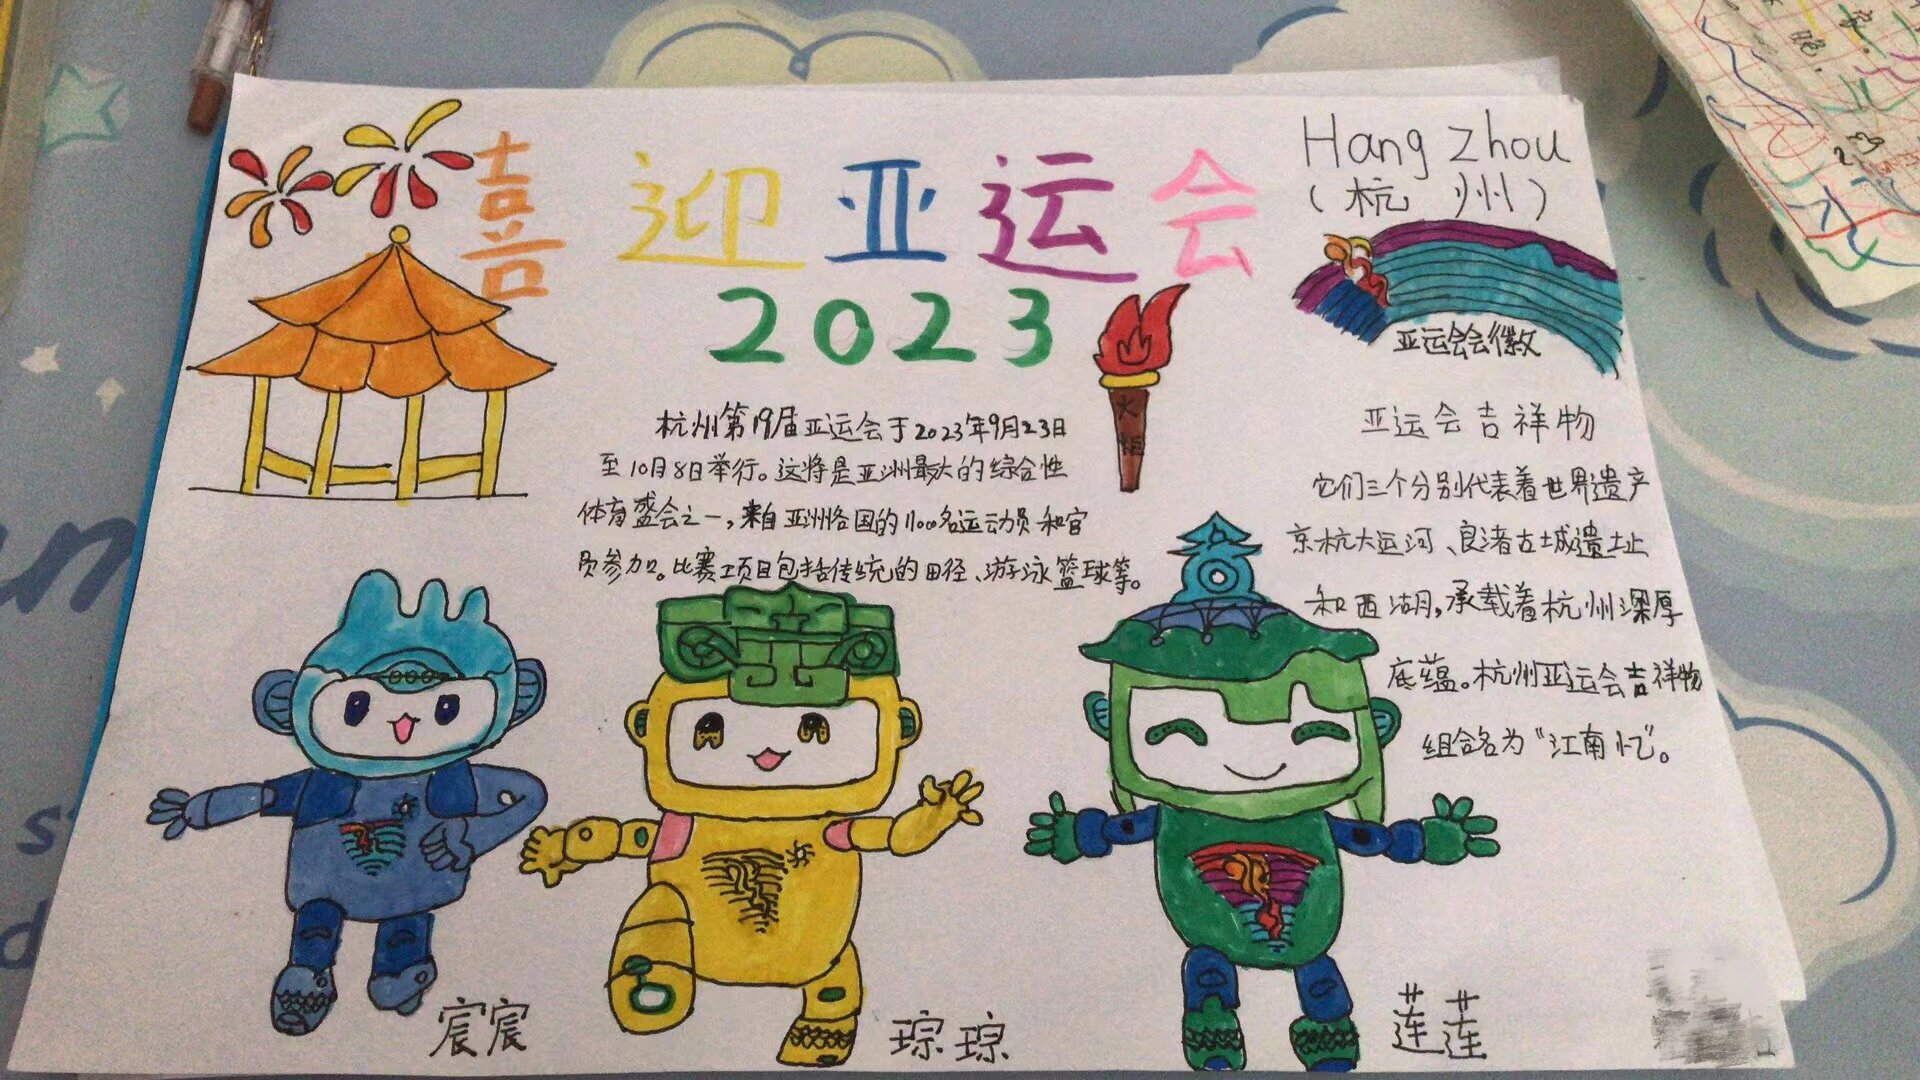 喜
迎亚运会
2023
HangZhou
（杭州）
亚运会会徽
火炬
杭州第19届亚运会于2023年9月23日
至10月8日举行。这将是亚洲最大的综合性
体育盛会之一，来自亚洲各国的11000名运动员和官
员参加。比赛项目包括传统的田径、游泳篮球等。
亚运会吉祥物
它们三个分别代表着世界遗产
京杭大运河、良渚古城遗址
和西湖，承载着杭州深厚
底蕴。杭州亚运会吉祥物
组合名为“江南忆”。
宸宸
琮琮
莲莲